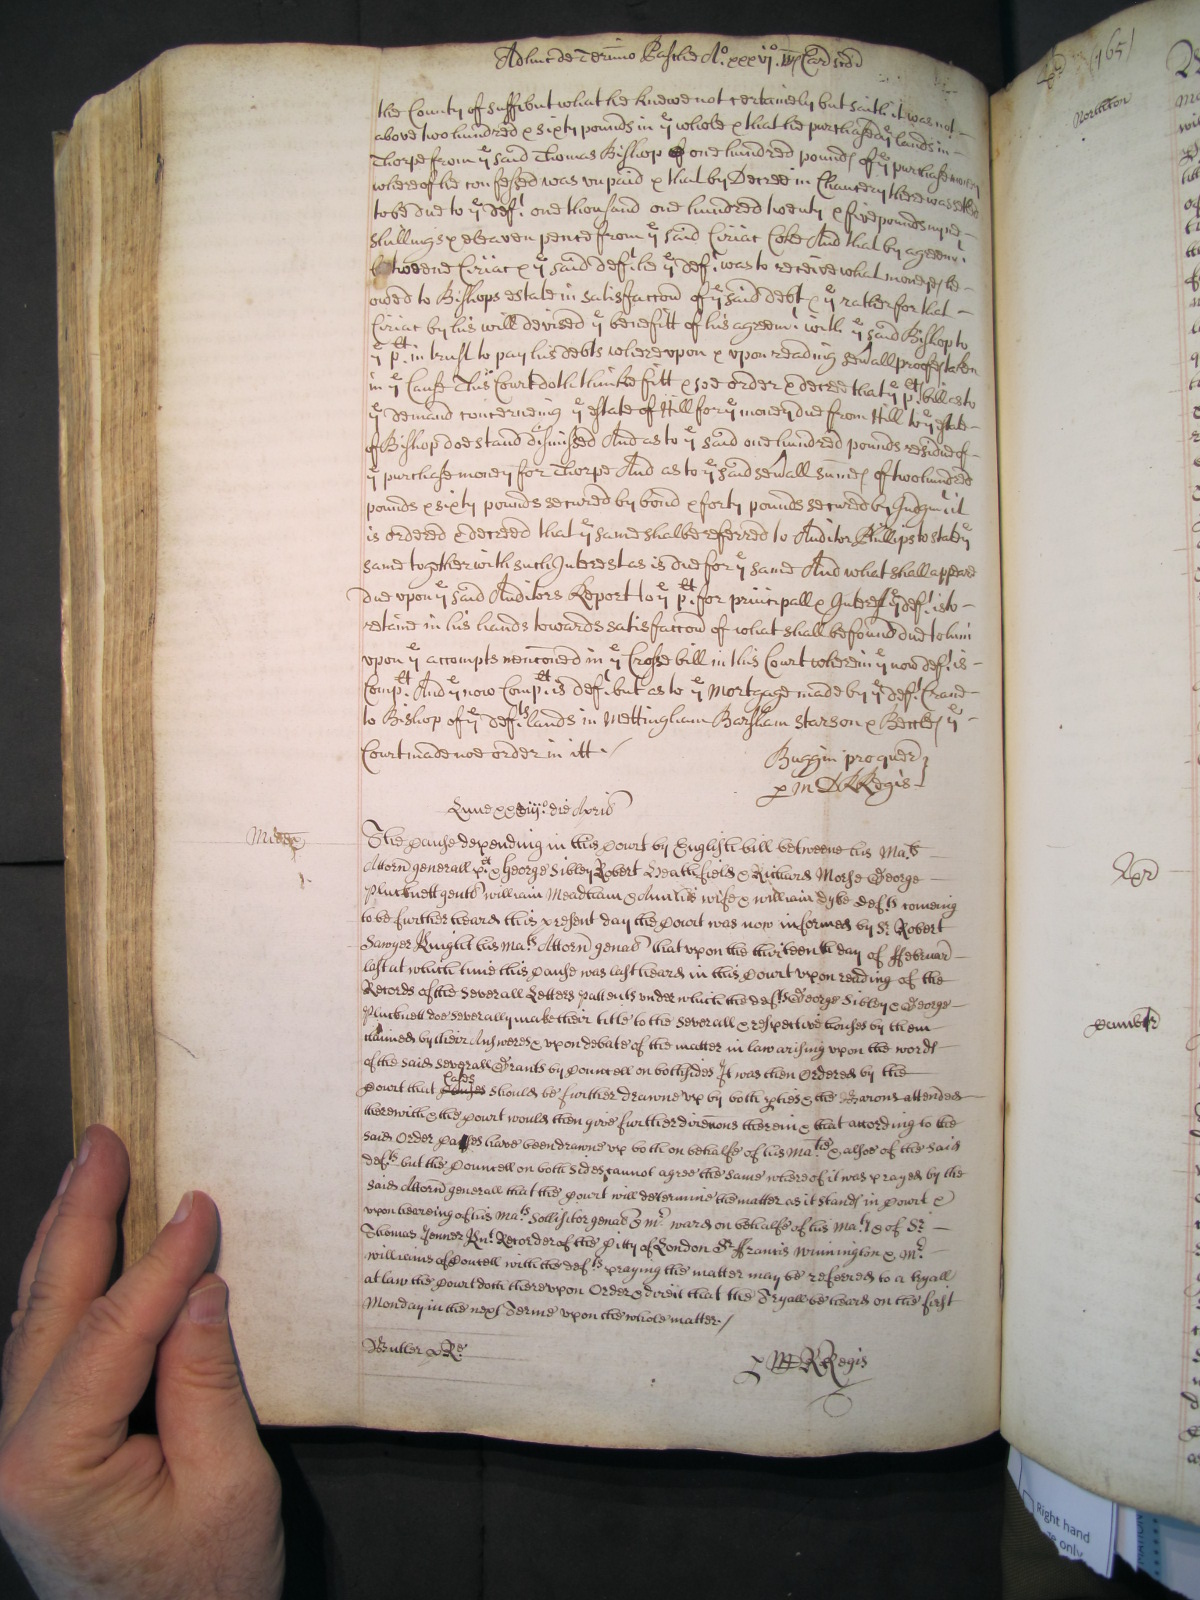 Adhuc de Termino Pasche Ao. xxxvio. RRs Car scdi
the County of Suff: but what he knewe not certainely but saith it was not
above two hundred & sixty pounds in ye whole & that he purchased ye lands in
Thorpe from ye said Thomas Bishop of one hundred pounds of ye purchase money
whereof he confessed was unpaid & that by Decree in Chancery there was setled
to be due to ye deft. one thousand one hundred twenty & five pounds nyne
shillings & eleaven pence from ye said Ciriac Coke And that by agreemt.
betweene Ciriac & ye said deft. he ye deft. was to receive what moneyes he
owed to Bishops estate in satisfaccon of ye said debt & ye rather for that
Ciriac by his will devised ye benefitt of his agreemt. with ye said Bishop to
ye plt. in trust to pay his debts whereupon & upon reading sevall proofes taken
in ye Cause This Court doth thinke fitt & soe order & decree that ye plts bill as to
ye demand concerneing ye estate of Hill for ye money due from Hill to ye estate
of Bishop doe stand dismissed And as to ye said one hundred pounds residue of
ye purchase money for Thorpe And as to ye said sevall summes of two hundred
pounds & sixty pounds secured by bond & forty pounds secured by Judgmt it
is ordered & decreed that ye same shalbe referred to Auditor Phillips to state ye
same together with such Interest as is due for ye same And what shall appeare
due upon ye said Auditors Report to ye plt. for principall & Interest ye deft. is to
retaine in his hands towards satisfaccon of what shall be found due to him
upon ye accompts mencioned in ye Crosse bill in this Court wherein ye now deft. is
Complt. And ye now Complt. is deft. but as to ye Mortgage made by ye deft. Crane
to Bishop of ye defts. lands in Mettingham Barsham Starson & Beccles ye
Court made noe order in itt
Buggin pro quer
p m D R Regis
Lune xxviijo. die Aprilis
Midds
The cause depending in this Court by English bill betweene his Mats
Attorn generall plt. & George Sibley Robert Heathfield & Richard Morse George
Plucknett gents William Meadham & Ann his wife & William Dyke defts comeing
to be further heard this present day the Court was now informed by Sr. Robert
Sawyer Knight his Mats. Attorn genall that upon the thirteenth day of ffebruar
last at which time this cause was last heard in this Court upon reading of the
Records of the severall Letters pattents under which the defts George Sibley & George
Plucknett doe severally make their title to the severall & respective houses by them
claimed by their Answeres & upon debate of the matter in law arising upon the words
of the said severall Grants by Councell on both sides It was then Ordered by the
Court that Cases should be further drawne up by both pties & the Barons attended
therewith & the Court would then give further direcons therein & that according to the
said Order Cases have been drawne up both on behalfe of his Matie & alsoe of the said
defts but the Councell on both sides cannot agree the same whereof it was prayed by the
said Attorn generall that the Court will determine the matter as it stands in Court &
upon heareing of his Mats. Sollicitor genall & Mr. Ward on behalfe of his Maty & of Sr.
Thomas Jenner Knt. Recorder of the Citty of London Sr. ffrancis Winnington & Mr.
Williams of Councell with the defts praying the matter may be referred to a tryall
at law the Court doth thereupon Order & direct that the Tryall be heard on the first
Monday in the next Terme upon the whole matter
Butler p Re.
p M R Regis
(165)
Northton
Right hand
only